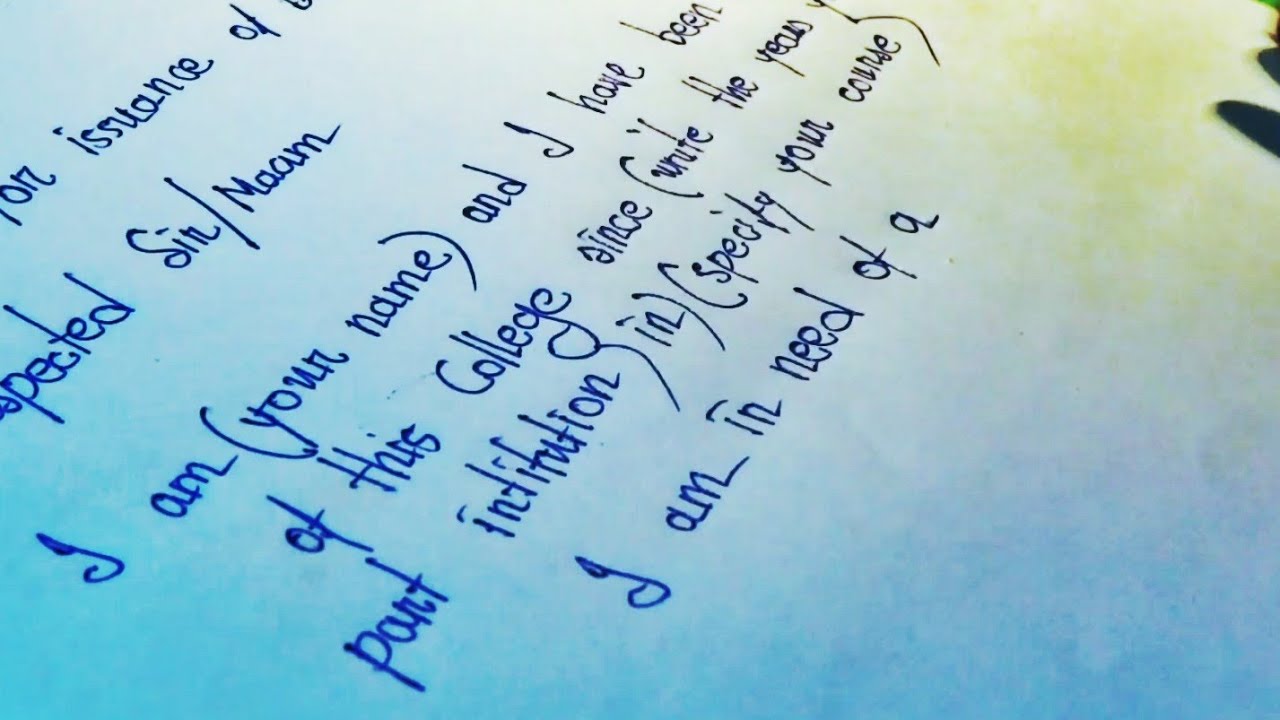 issuance of
Sir/Maam
I am (your name) and I have been
of this College since (write the years
part intitution) in) (specify your course)
I am in need of a